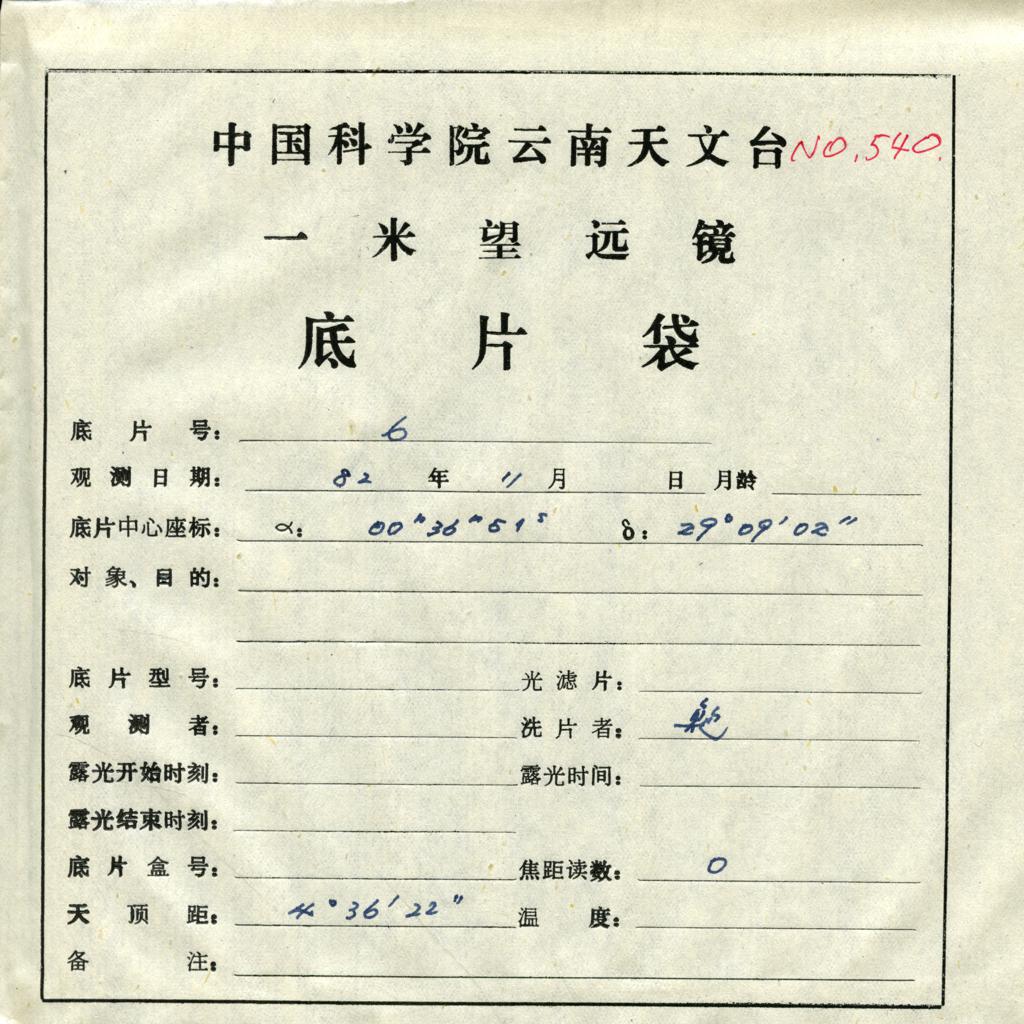 中国科学院云南天文台 NO.540.
一米望远镜
底片袋
底片号: 6
观测日期: 82 年 11 月 日 月龄
底片中心座标: α: 00h36m51s δ: 29°09′02″
对象、目的:
底片型号: 光滤片:
观测者: 洗片者:
露光开始时刻: 露光时间:
露光结束时刻:
底片盒号: 焦距读数: 0
天顶距: 4°36′22″ 温度:
备注: